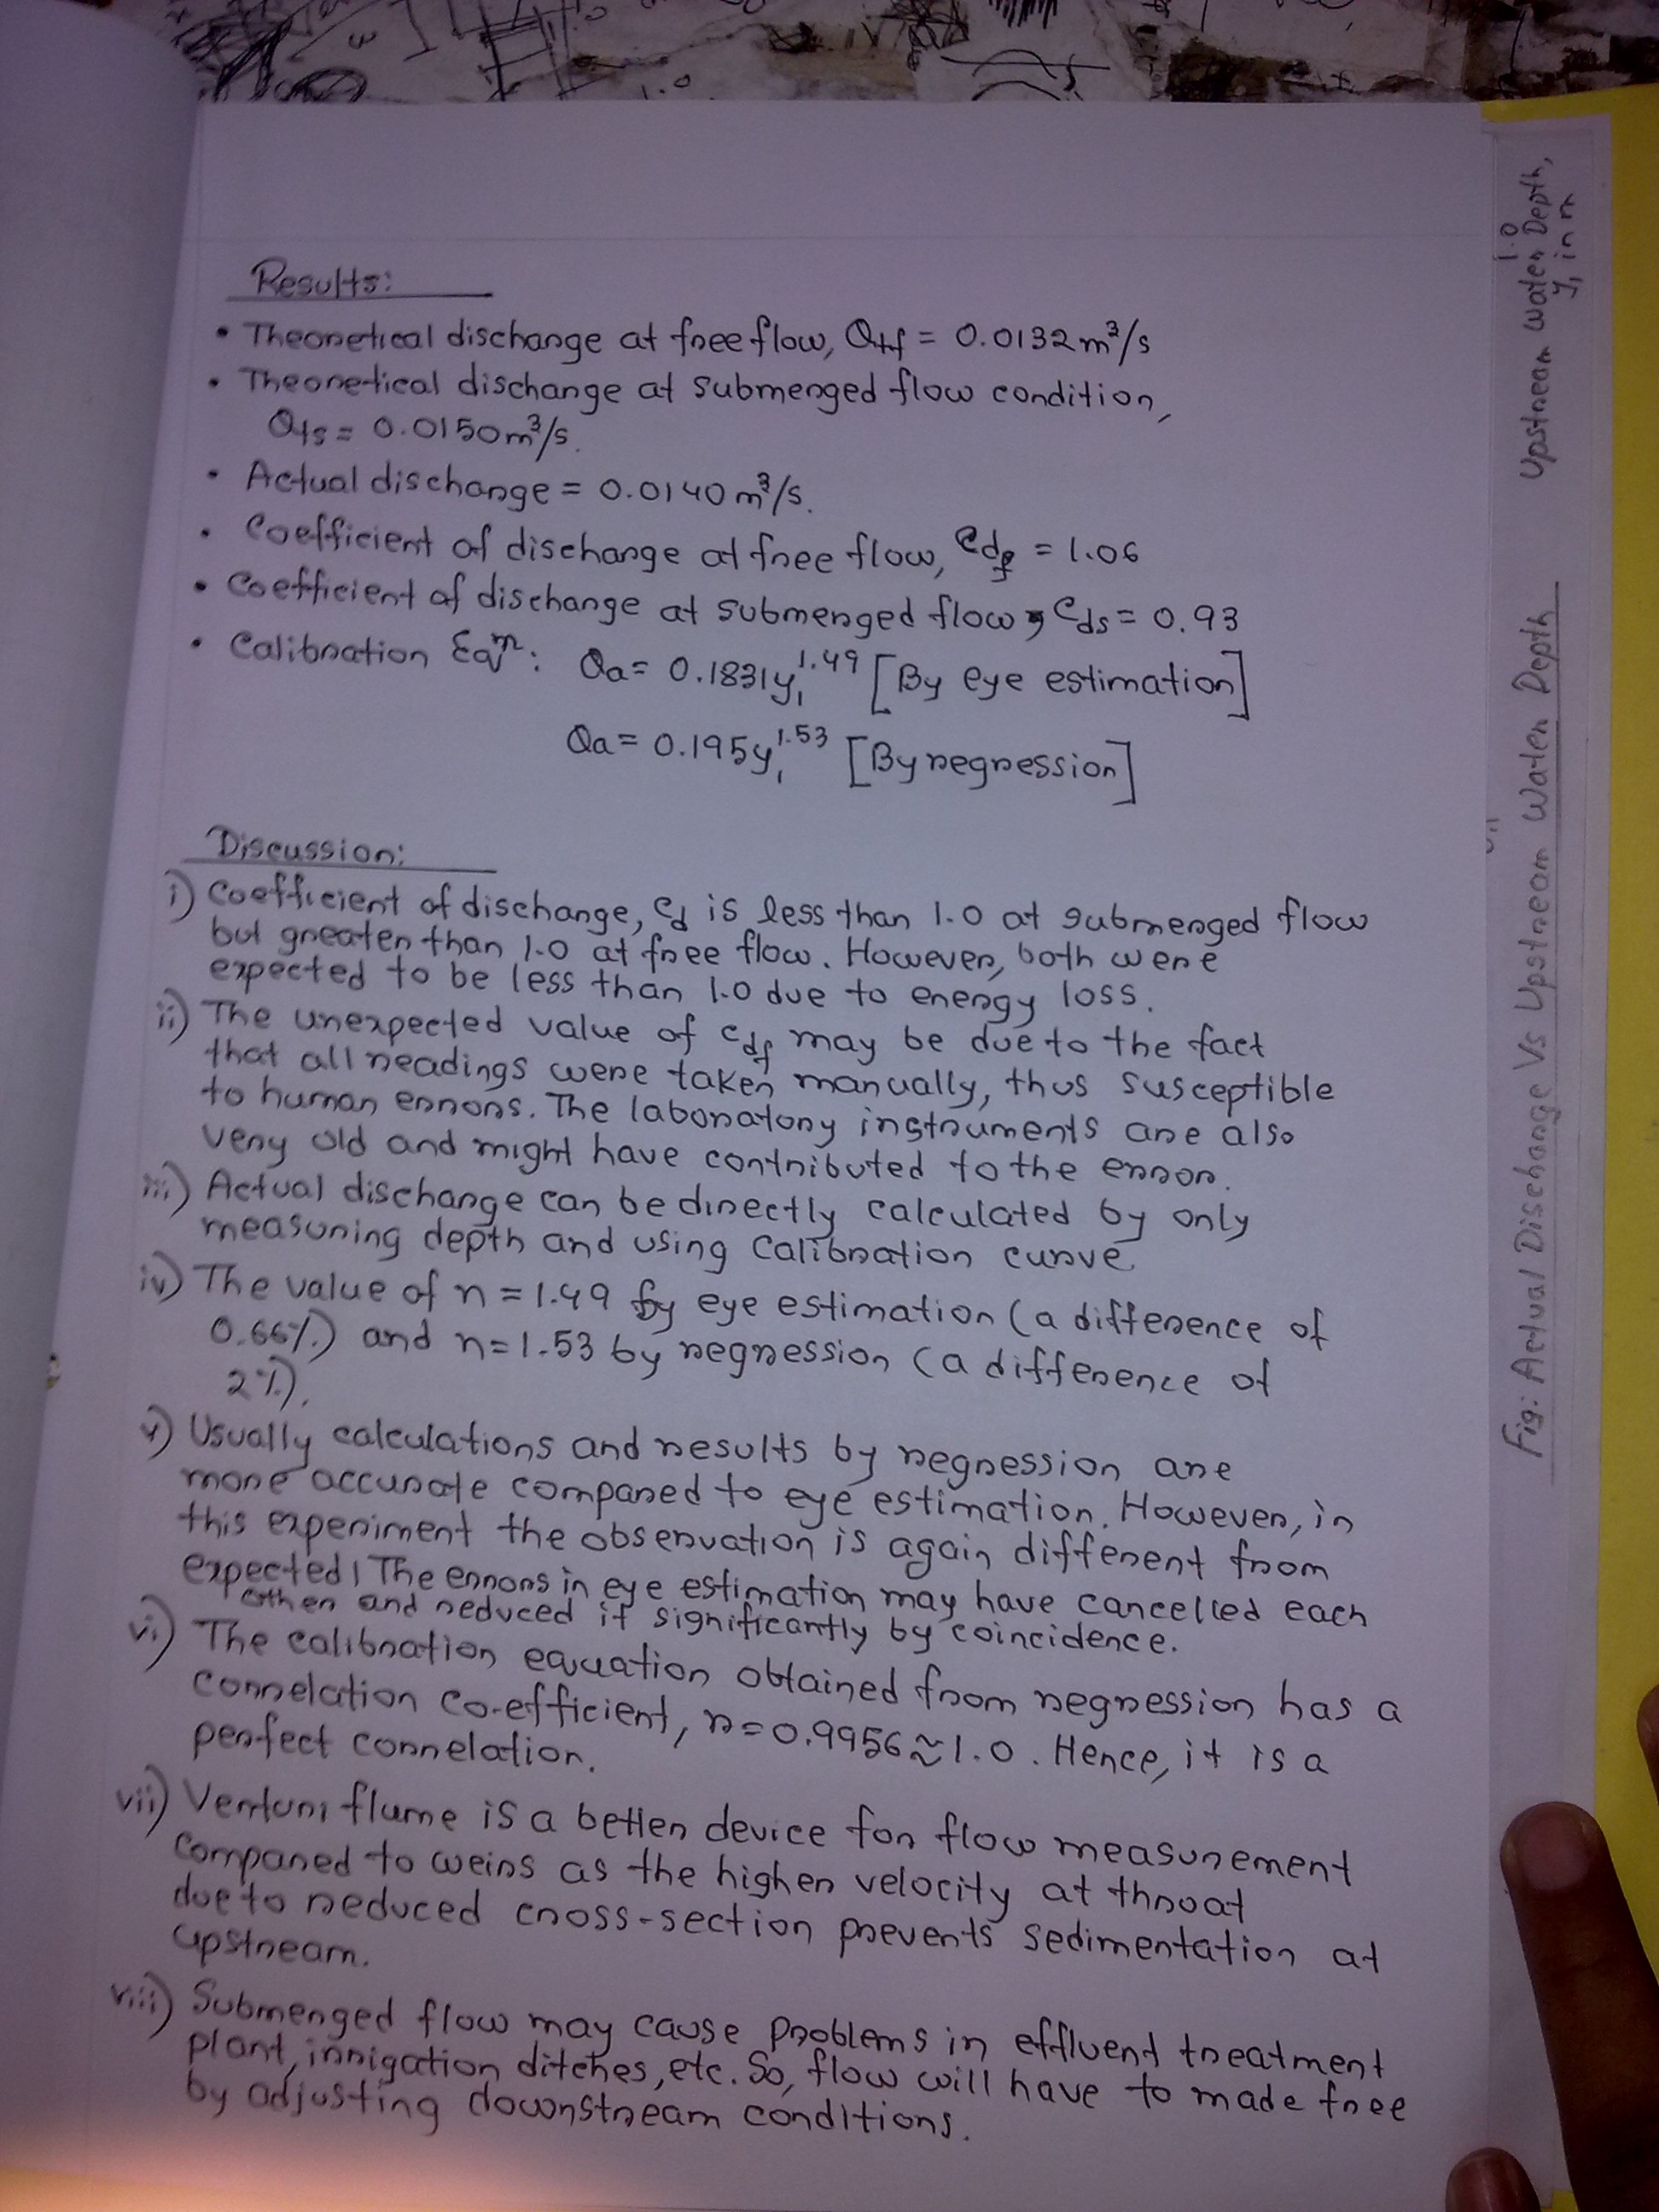 Results:
• Theoretical discharge at free flow, Qtf = 0.0132 m³/s
• Theoretical discharge at submerged flow condition,
Qts = 0.0150 m³/s.
• Actual discharge = 0.0140 m³/s.
• Coefficient of discharge at free flow, Cdf = 1.06
• Coefficient of discharge at submerged flow, Cds = 0.93
• Calibration Eqⁿ: Qa = 0.1831y₁^1.49 [By eye estimation]
Qa = 0.195y₁^1.53 [By regression]
Discussion:
i) Coefficient of discharge, Cd is less than 1.0 at submerged flow
but greater than 1.0 at free flow. However, both were
expected to be less than 1.0 due to energy loss.
ii) The unexpected value of Cdf may be due to the fact
that all readings were taken manually, thus susceptible
to human errors. The laboratory instruments are also
very old and might have contributed to the error.
iii) Actual discharge can be directly calculated by only
measuring depth and using Calibration curve.
iv) The value of n = 1.49 by eye estimation (a difference of
0.66%) and n = 1.53 by regression (a difference of
2%).
v) Usually calculations and results by regression are
more accurate compared to eye estimation. However, in
this experiment the observation is again different from
expected! The errors in eye estimation may have cancelled each
other and reduced it significantly by coincidence.
vi) The calibration equation obtained from regression has a
correlation co-efficient, r = 0.9956 ≈ 1.0. Hence, it is a
perfect correlation.
vii) Venturi flume is a better device for flow measurement
compared to weirs as the higher velocity at throat
due to reduced cross-section prevents sedimentation at
upstream.
viii) Submerged flow may cause problems in effluent treatment
plant, irrigation ditches, etc. So, flow will have to made free
by adjusting downstream conditions.
1.0
Upstream Water Depth,
y₁ in m
Fig: Actual Discharge Vs Upstream Water Depth